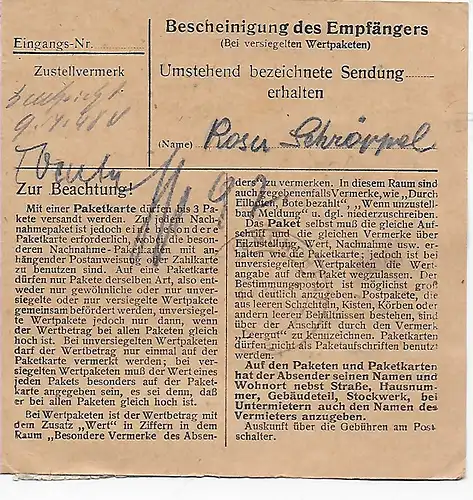 Eingangs-Nr.
Zustellvermerk
9.4.48
Bescheinigung des Empfängers
(Bei versiegelten Wertpaketen)
Umstehend bezeichnete Sendung
erhalten
(Name) Rosa Schröppel
Zur Beachtung!
Mit einer Paketkarte dürfen bis 3 Pa-
kete versandt werden. Zu jedem Nach-
nahmepaket ist jedoch eine besondere
Paketkarte erforderlich, wobei die beson-
deren Nachnahme-Paketkarten mit an-
hängender Postanweisung oder Zahlkarte
zu benutzen sind. Auf eine Paketkarte
dürfen nur Pakete derselben Art, also ent-
weder nur gewöhnliche oder nur unver-
siegelte oder nur versiegelte Wertpakete
gemeinsam befördert werden, unversiegel-
te Wertpakete jedoch nur dann, wenn
der Wertbetrag bei allen Paketen gleich
hoch ist. Bei unversiegelten Wertpaketen
darf der Wertbetrag nur einmal auf der
Paketkarte vermerkt werden; bei ver-
siegelten Wertpaketen muß der Wert eines
jeden Pakets besonders auf der Paket-
karte angegeben sein, es sei denn, daß
er bei allen Paketen gleich hoch ist.
Bei Wertpaketen ist der Wertbetrag mit
dem Zusatz „Wert" in Ziffern in dem
Raum „Besondere Vermerke des Absen-
ders" zu vermerken. In diesem Raum sind
auch gegebenenfalls Vermerke, wie „Durch
Eilboten, Bote bezahlt", „Wenn unzustell-
bar, Meldung" u. dgl. niederzuschreiben.
Das Paket selbst muß die gleiche Auf-
schrift und die gleichen Vermerke über
Eilzustellung, Wert, Nachnahme usw. er-
halten wie die Paketkarte; jedoch ist bei
unversiegelten Wertpaketen die Wert-
angabe auf dem Paket wegzulassen. Der
Bestimmungspostort ist möglichst groß
und deutlich anzugeben. Postpakete, die
aus leeren Schachteln, Kisten, Körben oder
anderen leeren Behältnissen bestehen, sind
über der Anschrift durch den Vermerk
„Leergut" zu kennzeichnen. Paketkarten
dürfen nicht als Paketaufschriften benutzt
werden.
Auf den Paketen und Paketkarten
hat der Absender seinen Namen und
Wohnort nebst Straße, Hausnum-
mer, Gebäudeteil, Stockwerk, bei
Untermietern auch den Namen des
Vermieters anzugeben.
Auskunft über die Gebühren am Post-
schalter.